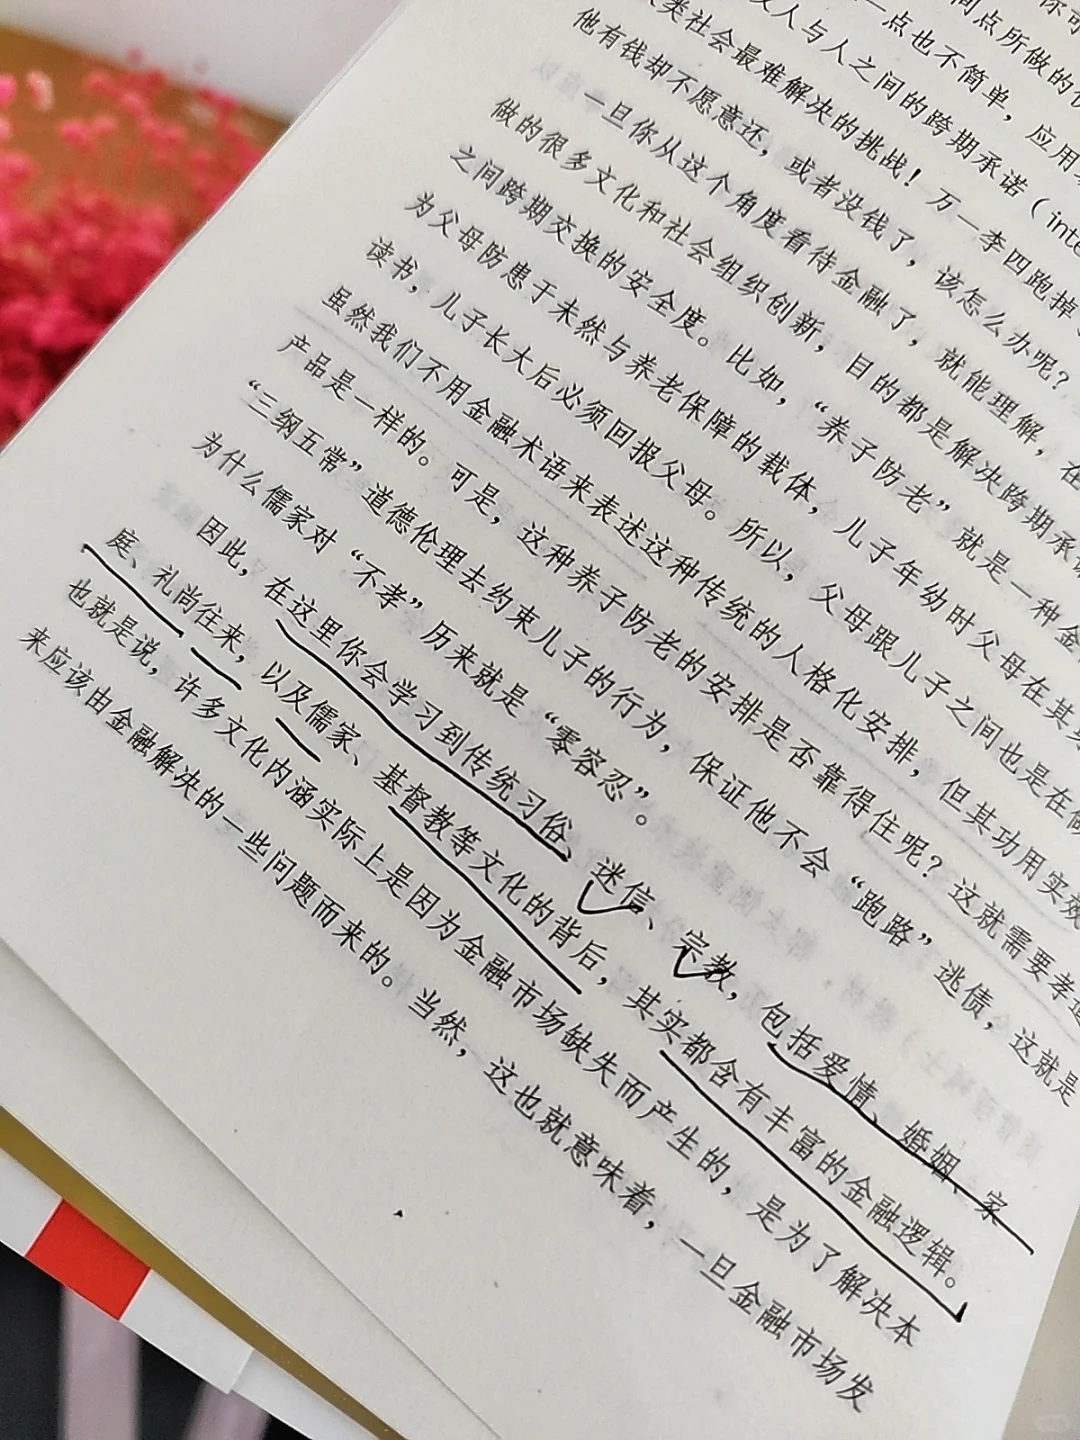 间点所做的
一点也不简单，应用
人与人之间的跨期承诺（inte
类社会最难解决的挑战！万一李四跑掉
他有钱却不愿意还，或者没钱了，该怎么办呢？
一旦你从这个角度看待金融了，就能理解，在
做的很多文化和社会组织创新，目的都是解决跨期承
之间跨期交换的安全度。比如，“养子防老”就是一种金
为父母防患于未然与养老保障的载体，儿子年幼时父母在其
读书，儿子长大后必须回报父母。所以，父母跟儿子之间也是在做
虽然我们不用金融术语来表述这种传统的人格化安排，但其功用实效
产品是一样的。可是，这种养子防老的安排是否靠得住呢？这就需要孝道
“三纲五常”道德伦理去约束儿子的行为，保证他不会“跑路”逃债，这就是
为什么儒家对“不孝”历来就是“零容忍”。
因此，在这里你会学习到传统习俗、迷信、宗教，包括爱情、婚姻、家
庭、礼尚往来，以及儒家、基督教等文化的背后，其实都含有丰富的金融逻辑。
也就是说，许多文化内涵实际上是因为金融市场缺失而产生的，是为了解决本
来应该由金融解决的一些问题而来的。当然，这也就意味着，一旦金融市场发